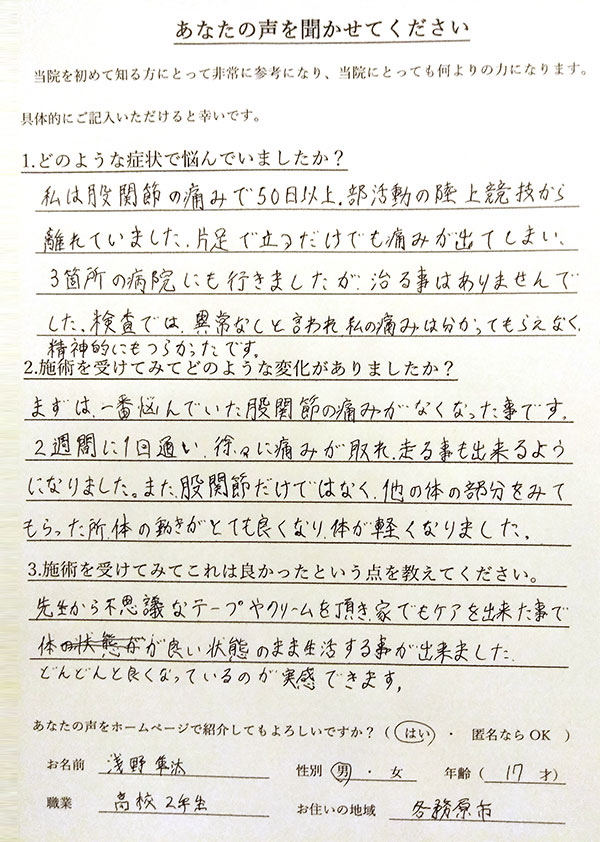 あなたの声を聞かせてください
当院を初めて知る方にとって非常に参考になり、当院にとっても何よりの力になります。
具体的にご記入いただけると幸いです。
1.どのような症状で悩んでいましたか？
私は股関節の痛みで50日以上、部活動の陸上競技から
離れていました。片足で立るだけでも痛みが出てしまい、
3箇所の病院にも行きましたが、治る事はありませんで
した。検査では、異常なしと言われ、私の痛みは分かってもらえなく、
精神的にもつらかったです。
2.施術を受けてみてどのような変化がありましたか？
まずは、一番悩んでいた股関節の痛みがなくなった事です。
2週間に1回通い、徐々に痛みが取れ、走る事も出来るよう
になりました。また、股関節だけではなく、他の体の部分をみて
もらった所、体の動きがとても良くなり、体が軽くなりました。
3.施術を受けてみてこれは良かったという点を教えてください。
先生から不思議なテープやクリームを頂き、家でもケアを出来た事で
体の状態がが良い状態のまま生活する事が出来ました。
どんどんと良くなっているのが実感できます。
あなたの声をホームページで紹介してもよろしいですか？（ はい ・ 匿名ならOK ）
お名前 浅野 隼汰 性別 男 ・ 女 年齢（ 17 才）
職業 高校2年生 お住いの地域 各務原市